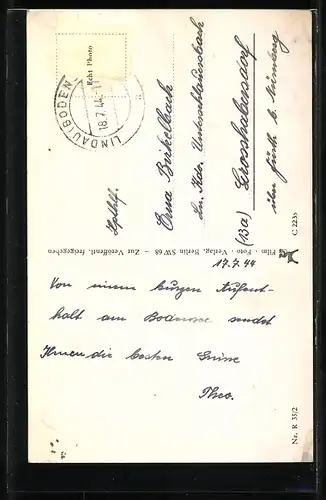 17.7.44
Von einem kurzen Aufent-
halt am Bodensee sendet
Ihnen die besten Grüsse
Theo.
Film - Foto - Verlag, Berlin SW 68 - Zur Veröffentl. freigegeben
C 2235
Nr. R 35/2
Echt Photo
LINDAU (BODEN
18.7.44
Erna Birkelbach
Unterschlauersbach
(13a) Grosshabersdorf
über Fürth b. Nürnberg